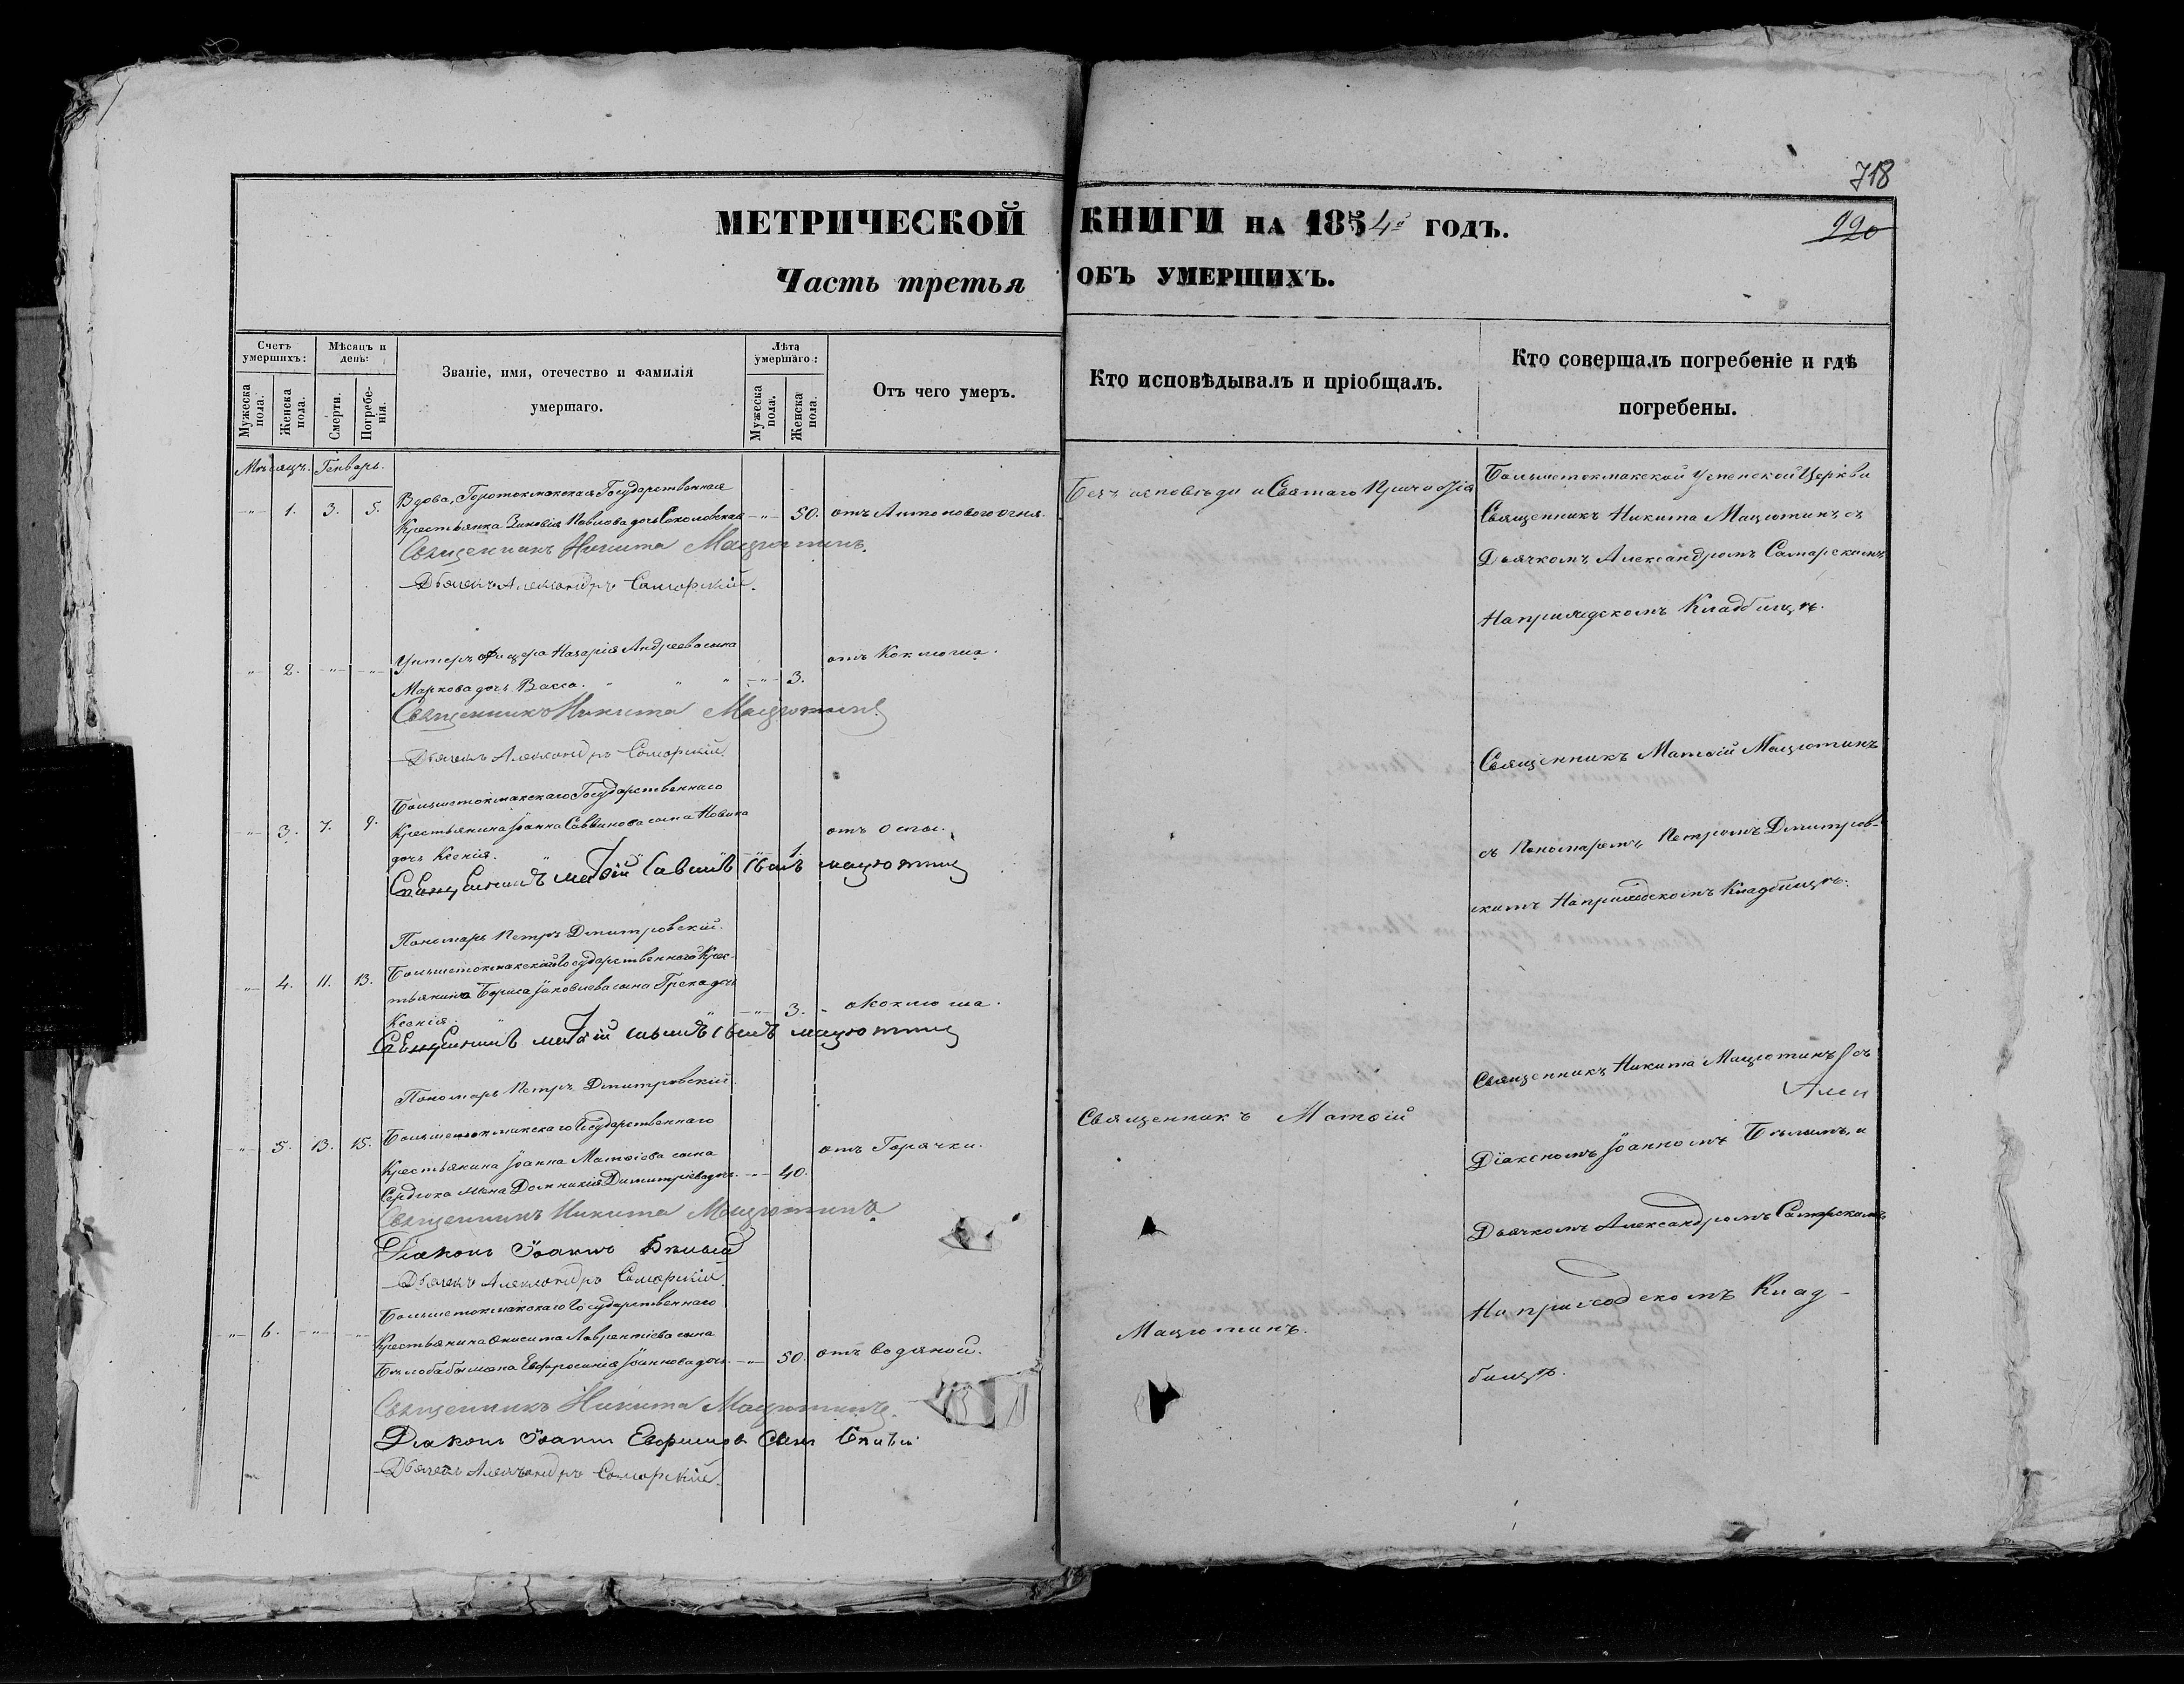 718
МЕТРИЧЕСКОЙ КНИГИ НА 1854й ГОДЪ.
220
Часть третья ОБЪ УМЕРШИХЪ.
Счетъ умершихъ:
Мужеска пола.
Женска пола.
Мѣсяцъ и день:
Смерти.
Погребенія.
Званіе, имя, отечество и фамилія
умершаго.
Лѣта умершаго:
Мужеска пола.
Женска пола.
Отъ чего умеръ.
Кто исповѣдывалъ и пріобщалъ.
Кто совершалъ погребеніе и гдѣ
погребены.
Мѣсяцъ. Генварь.
Вдова, Государственная
1. 3. 5. Крестьянка Зиновія Павлова дочь Соколовская 50. отъ Антонового огня.
Священникъ Никита Мацютинъ.
Дьячекъ Александръ Самарскій.
Безъ исповѣди и Святаго Причастія
Большетокмакской Успенской Церкви
Священникъ Никита Мацютинъ съ
Дьячкомъ Александромъ Самарскимъ
На приходскомъ Кладбищѣ.
2. Унтеръ офицера Назарія Андреева сына
Маркова дочь Васса. 3. отъ Коклюша.
Священникъ Никита Мацютинъ
Дьячекъ Александръ Самарскій.
Большетокмакскаго Государственнаго
3. 7. 9. Крестьянина Іоанна Саввинова сына Новика
дочь Ксенія. 1. отъ оспы.
Священникъ Матѳій Саввинъ сынъ Мацютинъ
Пономарь Петръ Дмитровскій.
Священникъ Матѳій Мацютинъ
съ Пономаремъ Петромъ Дмитров-
скимъ На приходскомъ Кладбищѣ.
4. 11. 13. Большетокмакскаго Государственнаго Крес-
тьянина Бориса Іаковлева сына Грека дочь
Ксенія. 3. Коклюша.
Священникъ Матѳій сынъ Мацютинъ
Пономарь Петръ Дмитровскій.
5. 13. 15. Большетокмакскаго Государственнаго
Крестьянина Іоанна Матѳіева сына
Сердюка жена Домникія Димитріева дочь. 40. отъ Горячки.
Священникъ Никита Мацютинъ
Діаконъ Іоаннъ Бѣлый
Дьячекъ Александръ Самарскій.
6. Большетокмакскаго Государственнаго
Крестьянина Онисима Лаврентіева сына
Бѣлобабы жена Евфросинія Іоаннова дочь. 50. отъ водяной.
Священникъ Никита Мацютинъ.
Діаконъ Іоаннъ Евфимовъ Сынъ Бѣлый
Дьячекъ Александръ Самарскій.
Священникъ Матѳій
Мацютинъ.
Священникъ Никита Мацютинъ съ
Діакономъ Іоанномъ Бѣлымъ, и
Дьячкомъ Александромъ Самарскимъ
На приходскомъ Клад-
бищѣ.